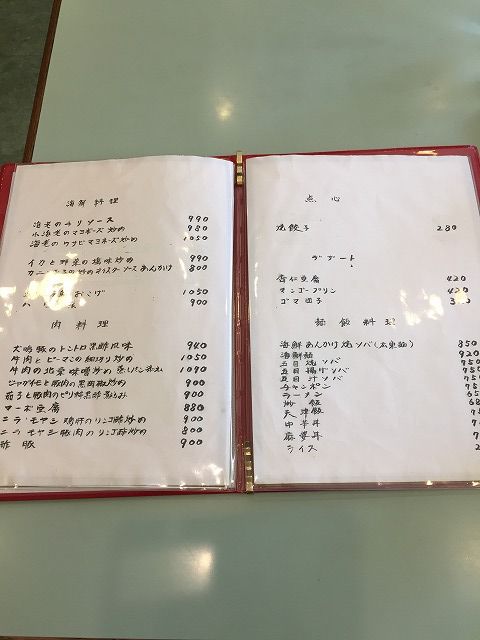 海鮮料理
海老のチリソース 990
小海老のマヨネーズ炒め 980
海老のワサビマヨネーズ炒め 1050
イカと野菜の塩味炒め 990
オイスターソースあんかけ 800
おこげ 1050
900
肉料理
豚のトントロ黒酢風味 940
牛肉とピーマンの細切り炒め 1050
牛肉の北京味噌炒め 蒸しパン添え 1090
ジャガイモと豚肉の黒胡椒炒め 900
茄子と豚肉のピリ辛黒酢煮込み 900
マーボ豆腐 880
ニラ・モヤシ 鶏肝のリンゴ酢炒め 900
モヤシ豚肉のリンゴ酢炒め 800
酢豚 900
点心
焼餃子 280
デザート
杏仁豆腐 420
マンゴープリン 420
ゴマ団子
麺飯料理
海鮮あんかけ焼ソバ(太東麺) 850
海鮮麺 920
五目焼ソバ 750
五目揚げソバ
五目汁ソバ
チャンポン
ラーメン
炒飯
天津飯
中華丼
麻婆丼
ライス